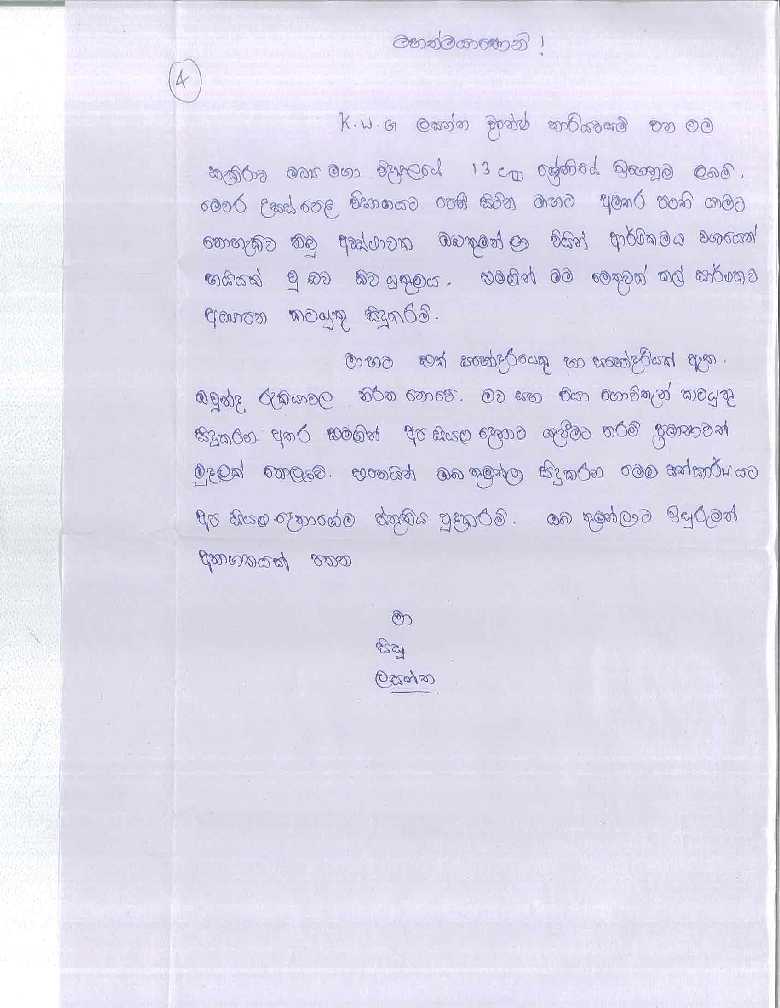 මහත්මයාණෙනි !
4
K.W.G ලසන්ත කාරියවසම් වන මම
මධ්‍ය මහා විද්‍යාලයේ 13 ශ්‍රේණියේ ඉගෙනුම ලබමි.
මෙවර උසස් පෙළ විභාගයට පෙනී සිටින මාහට අමතර පංති යාමට
නොහැකිව තිබූ අවස්ථාවක ඔබතුමන්ලා විසින් ආර්ථිකමය වශයෙන්
හයියක් වූ බව කිව යුතුමය. එමගින් මම මෙතුවක් කල් සාර්ථකව
අධ්‍යාපන කටයුතු සිදුකරමි.
මාහට තවත් සහෝදරයෙකු හා සහෝදරියක් ඇත.
ඔවුන්ද රැකියාවල නිරත නොවේ. මව සහ පියා ගොවිතැන් කටයුතු
සිදුකරන අතර එමගින් අප සියලු දෙනාට යැපීමට තරම් ප්‍රමාණවත්
මුදලක් නොලැබේ. එහෙයින් ඔබ තුමන්ලා සිදුකරන මෙම සත්කාර්යයට
අප සියලු දෙනාගේම ස්තූතිය පුදකරමි. ඔබ තුමන්ලාට ඉසුරුමත්
අනාගතයක් පතන
මා
සිසු
ලසන්ත